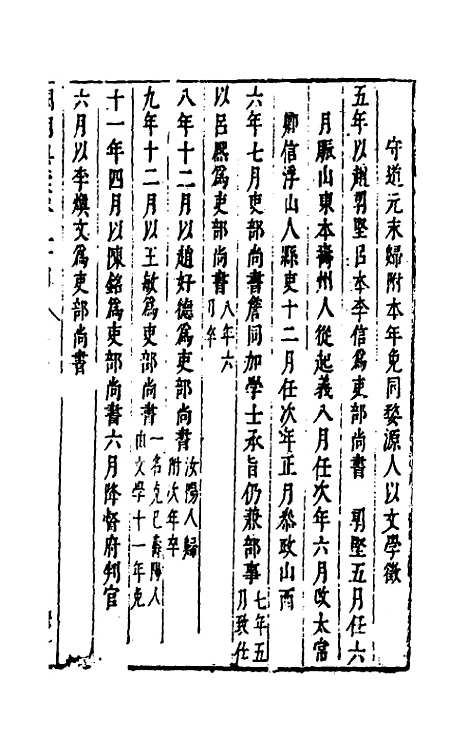 守道元末歸附本年免同婺源人以文學徵
五年以趙羽堅呂本李信為吏部尚書　羽堅五月任六
月賑山東本壽州人從起義八月任次年六月改太常
卿信浮山人縣吏十二月任次年正月叅政山西
六年七月吏部尚書詹同加學士承旨仍兼部事七年五月致仕
以呂熙為吏部尚書八年六月卒
八年十二月以趙好德為吏部尚書汝陽人歸附次年卒
九年十二月以王敏為吏部尚書一名克巳壽陽人由文學十一年免
十一年四月以陳銘為吏部尚書六月降督府判官
六月以李煥文為吏部尚書